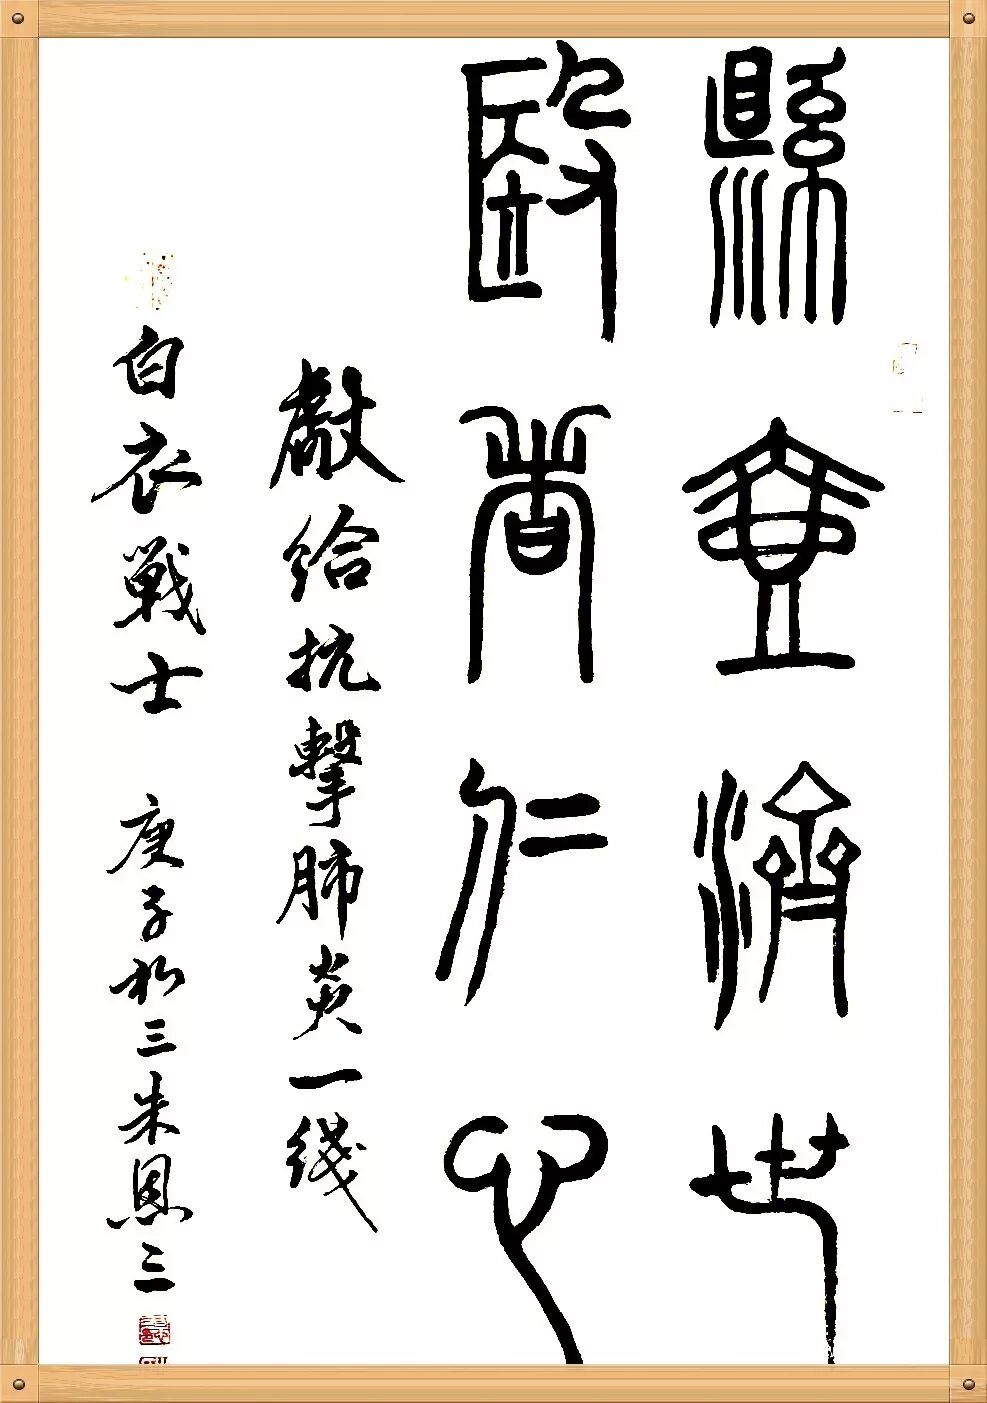 縣壺濟世
殹者仁心
獻給抗擊肺炎一綫
白衣戰士 庚子初三朱恩三